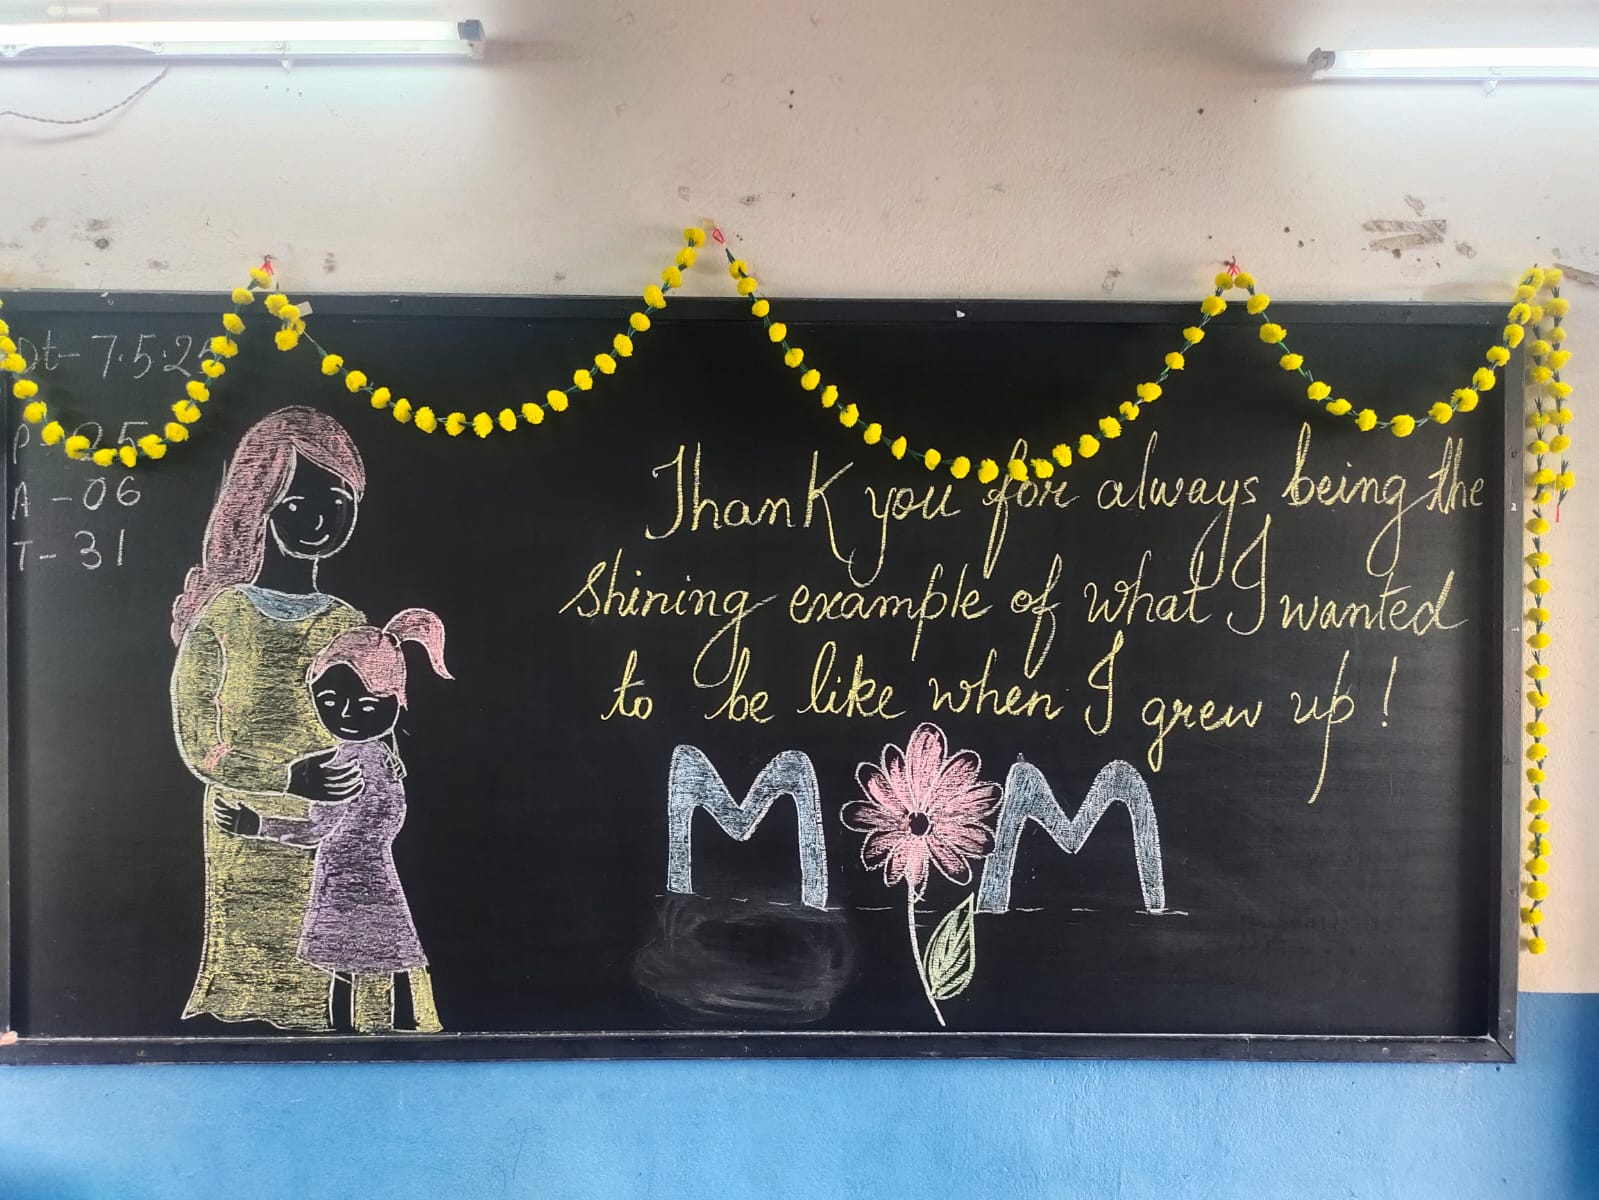 Dt- 7.5.25
P - 25
A - 06
T - 31
Thank you for always being the
shining example of what I wanted
to be like when I grew up!
MOM